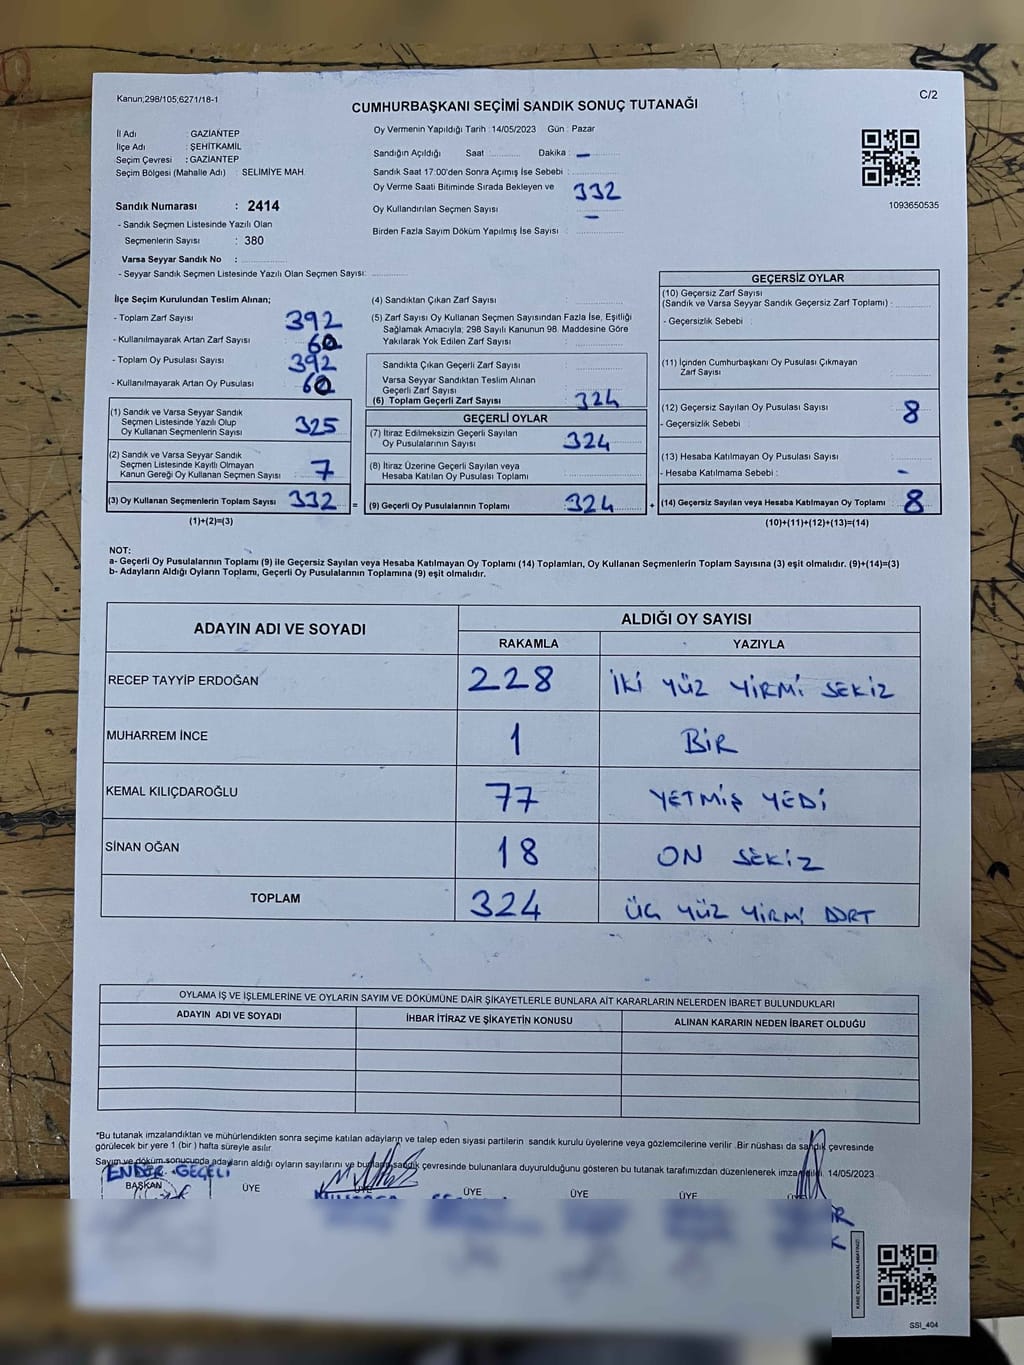 Kanun;298/105;6271/18-1
C/2
CUMHURBAŞKANI SEÇİMİ SANDIK SONUÇ TUTANAĞI
İl Adı : GAZİANTEP
İlçe Adı : ŞEHİTKAMİL
Seçim Çevresi : GAZİANTEP
Seçim Bölgesi (Mahalle Adı) : SELIMIYE MAH.
Sandık Numarası : 2414
- Sandık Seçmen Listesinde Yazılı Olan
Seçmenlerin Sayısı : 380
Varsa Seyyar Sandık No :
- Seyyar Sandık Seçmen Listesinde Yazılı Olan Seçmen Sayısı:
Oy Vermenin Yapıldığı Tarih : 14/05/2023 Gün : Pazar
Sandığın Açıldığı Saat Dakika : –
Sandık Saat 17:00'den Sonra Açımış İse Sebebi :
Oy Verme Saati Bitiminde Sırada Bekleyen ve
Oy Kullandırılan Seçmen Sayısı : 332
Birden Fazla Sayım Döküm Yapılmış İse Sayısı : –
1093650535
İlçe Seçim Kurulundan Teslim Alınan;
- Toplam Zarf Sayısı : 392
- Kullanılmayarak Artan Zarf Sayısı : 60
- Toplam Oy Pusulası Sayısı : 392
- Kullanılmayarak Artan Oy Pusulası : 60
(1) Sandık ve Varsa Seyyar Sandık
Seçmen Listesinde Yazılı Olup
Oy Kullanan Seçmenlerin Sayısı : 325
(2) Sandık ve Varsa Seyyar Sandık
Seçmen Listesinde Kayıtlı Olmayan
Kanun Gereği Oy Kullanan Seçmen Sayısı : 7
(3) Oy Kullanan Seçmenlerin Toplam Sayısı : 332
(1)+(2)=(3)
(4) Sandıktan Çıkan Zarf Sayısı :
(5) Zarf Sayısı Oy Kullanan Seçmen Sayısından Fazla İse, Eşitliği
Sağlamak Amacıyla; 298 Sayılı Kanunun 98. Maddesine Göre
Yakılarak Yok Edilen Zarf Sayısı :
Sandıkta Çıkan Geçerli Zarf Sayısı :
Varsa Seyyar Sandıktan Teslim Alınan
Geçerli Zarf Sayısı :
(6) Toplam Geçerli Zarf Sayısı : 324
GEÇERLİ OYLAR
(7) İtiraz Edilmeksizin Geçerli Sayılan
Oy Pusulalarının Sayısı : 324
(8) İtiraz Üzerine Geçerli Sayılan veya
Hesaba Katılan Oy Pusulası Toplamı :
= (9) Geçerli Oy Pusulalarının Toplamı : 324
GEÇERSİZ OYLAR
(10) Geçersiz Zarf Sayısı
(Sandık ve Varsa Seyyar Sandık Geçersiz Zarf Toplamı) :
- Geçersizlik Sebebi :
(11) İçinden Cumhurbaşkanı Oy Pusulası Çıkmayan
Zarf Sayısı :
(12) Geçersiz Sayılan Oy Pusulası Sayısı : 8
- Geçersizlik Sebebi :
(13) Hesaba Katılmayan Oy Pusulası Sayısı :
- Hesaba Katılmama Sebebi : –
+ (14) Geçersiz Sayılan veya Hesaba Katılmayan Oy Toplamı : 8
(10)+(11)+(12)+(13)=(14)
NOT:
a- Geçerli Oy Pusulalarının Toplamı (9) ile Geçersiz Sayılan veya Hesaba Katılmayan Oy Toplamı (14) Toplamları, Oy Kullanan Seçmenlerin Toplam Sayısına (3) eşit olmalıdır. (9)+(14)=(3)
b- Adayların Aldığı Oyların Toplamı, Geçerli Oy Pusulalarının Toplamına (9) eşit olmalıdır.
ADAYIN ADI VE SOYADI ALDIĞI OY SAYISI
RAKAMLA YAZIYLA
RECEP TAYYİP ERDOĞAN 228 İKİ YÜZ YİRMİ SEKİZ
MUHARREM İNCE 1 BİR
KEMAL KILIÇDAROĞLU 77 YETMİŞ YEDİ
SİNAN OĞAN 18 ON SEKİZ
TOPLAM 324 ÜÇ YÜZ YİRMİ DÖRT
OYLAMA İŞ VE İŞLEMLERİNE VE OYLARIN SAYIM VE DÖKÜMÜNE DAİR ŞİKAYETLERLE BUNLARA AİT KARARLARIN NELERDEN İBARET BULUNDUKLARI
ADAYIN ADI VE SOYADI İHBAR İTİRAZ VE ŞİKAYETİN KONUSU ALINAN KARARIN NEDEN İBARET OLDUĞU
*Bu tutanak imzalandıktan ve mühürlendikten sonra seçime katılan adayların ve talep eden siyasi partilerin sandık kurulu üyelerine veya gözlemcilerine verilir .Bir nüshası da sandık çevresinde
görülecek bir yere 1 (bir ) hafta süreyle asılır.
Sayım ve döküm sonucunda adayların aldığı oyların sayılarını ve bunların sandık çevresinde bulunanlara duyurulduğunu gösteren bu tutanak tarafımızdan düzenlenerek 14/05/2023
ENDER GEÇELİ
BAŞKAN ÜYE ÜYE ÜYE ÜYE ÜYE
SSI_404